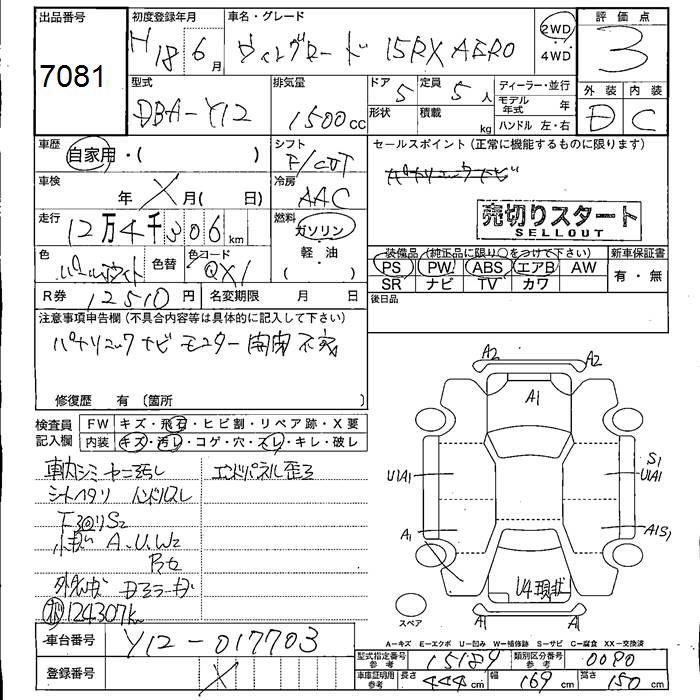 出品番号
7081
初度登録年月
H18 6月
車名・グレード
ウィングロード 15RX AERO
2WD
・
4WD
評価点
3
型式
DBA-Y12
排気量
1500cc
ドア
5
定員
5人
形状
積載
kg
ディーラー・並行
モデル年式
年
ハンドル 左・右
外装
内装
D
C
車歴
自家用・( )
シフト
F/CVT
セールスポイント(正常に機能するものに限ります)
パナソニックナビ
車検
年 X 月( 日)
冷房
AAC
売切りスタート
SELLOUT
走行
12万4千306km
燃料
ガソリン
軽・油
( )
色
パールホワイト
色替
色コード
QX1
装備品(純正品に限り○をつけて下さい)
新車保証書
PS
PW
ABS
エアB
AW
有・無
SR
ナビ
TV
カワ
R券
12510円
名変期限
月 日
後日品
注意事項申告欄(不具合内容等は具体的に記入して下さい)
パナソニック ナビ モニター 開閉 不良
修復歴 有 (箇所 )
検査員
記入欄
FW
キズ・飛石・ヒビ割・リペア跡・X要
内装
キズ・汚レ・コゲ・穴・スレ・キレ・破レ
車内シミ ヤニ汚れ
エンドパネル歪み
シートヘタリ ハンドルスレ
下回りS2
A.U.W2
124307km
車台番号
Y12-017703
登録番号
X
A2
A2
A1
U1A1
S1
U1A1
A1
A1S1
U4 現状
A1
A1
スペア
A-キズ E-エクボ U-凹み W-補修跡 S-サビ C-腐食 XX-交換済
型式指定番号
参考
15184
類別区分番号
参考
0090
車庫証明用
参考
長さ
444cm
幅
169cm
高さ
150cm